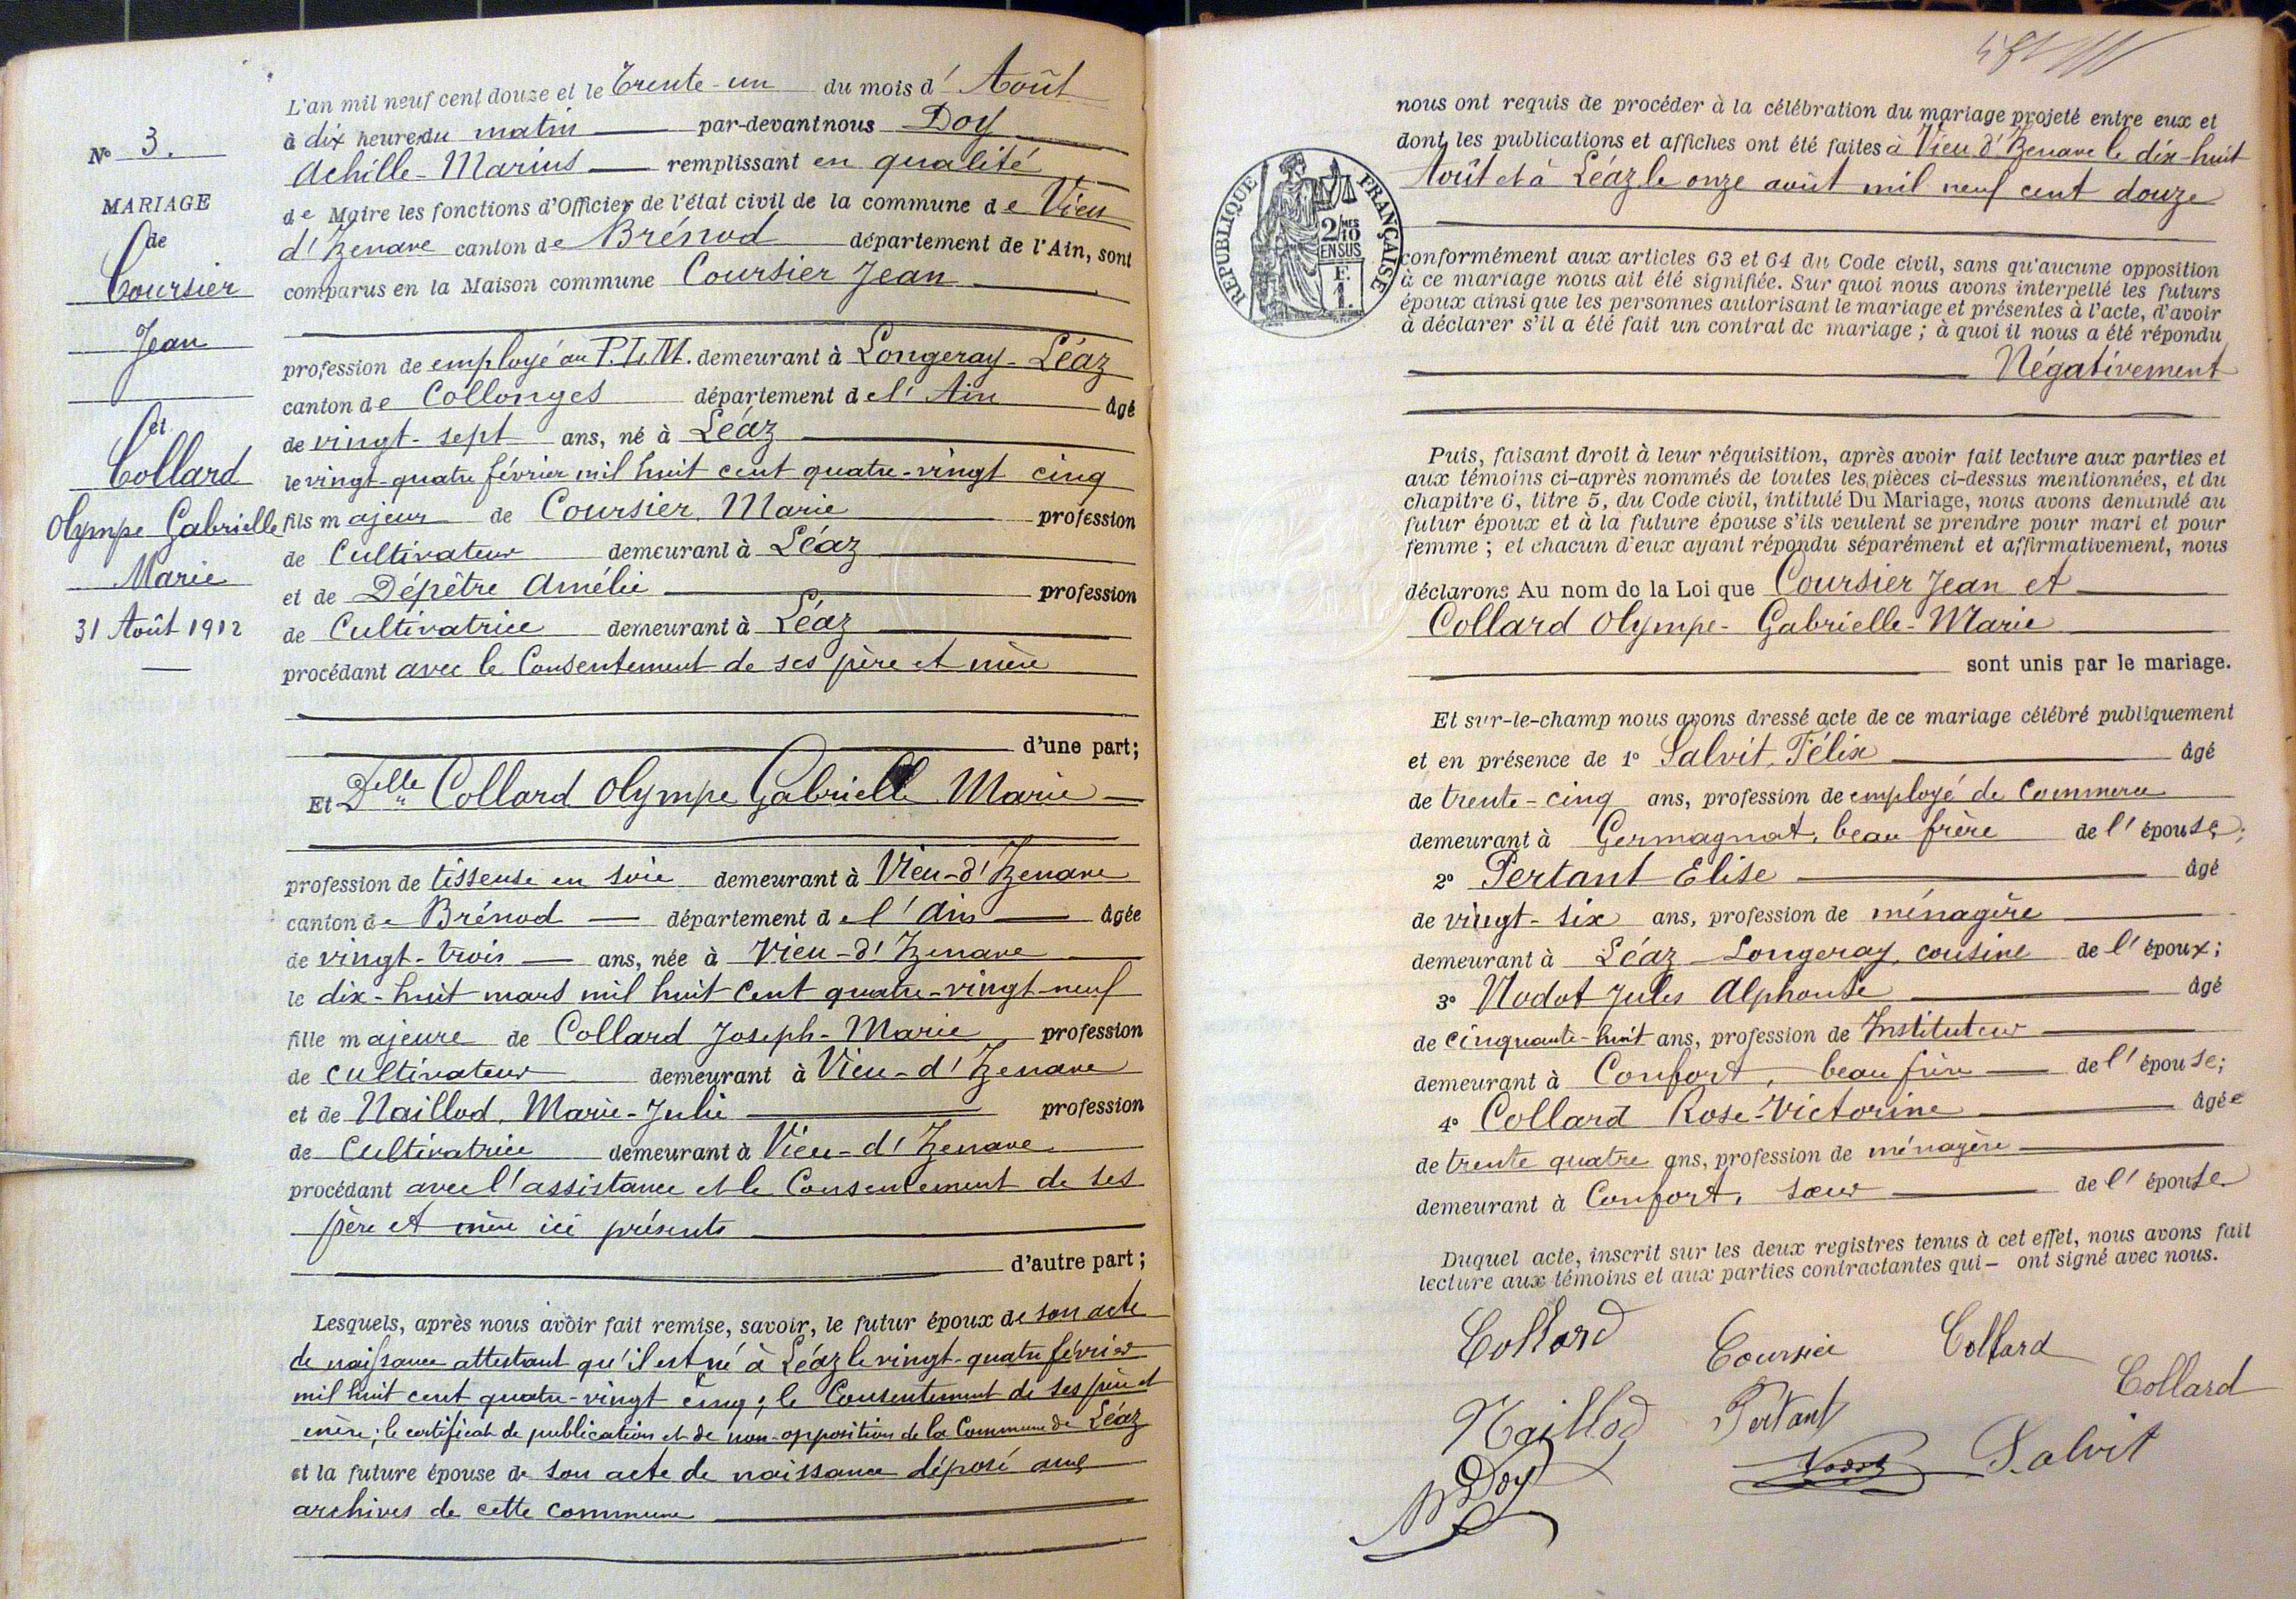 N° 3.
MARIAGE
de
Coursier
Jean
et
Collard
Olympe Gabrielle
Marie
31 Août 1912
L'an mil neuf cent douze et le trente-un du mois d' Août
à dix heures du matin par-devant nous Doy
Achille-Marius remplissant en qualité
de Maire les fonctions d'Officier de l'état civil de la commune de Vieu
d'Izenave canton de Brénod département de l'Ain, sont
comparus en la Maison commune Coursier Jean
profession de employé au P.L.M. demeurant à Longeray-Léaz
canton de Collonges département de l'Ain âgé
de vingt-sept ans, né à Léaz
le vingt-quatre février mil huit cent quatre-vingt cinq
fils majeur de Coursier Marie profession
de Cultivateur demeurant à Léaz
et de Dépêtre Amélie profession
de Cultivatrice demeurant à Léaz
procédant avec le Consentement de ses père et mère
d'une part;
Et Delle Collard Olympe Gabrielle Marie
profession de tisseuse en soie demeurant à Vieu-d'Izenave
canton de Brénod département de l'Ain âgée
de vingt-trois ans, née à Vieu-d'Izenave
le dix-huit mars mil huit cent quatre-vingt-neuf
fille majeure de Collard Joseph-Marie profession
de cultivateur demeurant à Vieu-d'Izenave
et de Naillod, Marie-Julie profession
de Cultivatrice demeurant à Vieu-d'Izenave
procédant avec l'assistance et le Consentement de ses
père et mère ici présents
d'autre part;
Lesquels, après nous avoir fait remise, savoir, le futur époux de son acte
de naissance attestant qu'il est né à Léaz le vingt-quatre février
mil huit cent quatre-vingt cinq; le Consentement de ses père et
mère; le certificat de publication et de non-opposition de la Commune de Léaz
et la future épouse de son acte de naissance déposé aux
archives de cette commune
nous ont requis de procéder à la célébration du mariage projeté entre eux et
dont les publications et affiches ont été faites à Vieu d'Izenave le dix-huit
Août et à Léaz le onze août mil neuf cent douze
REPUBLIQUE FRANÇAISE
2/10 MES
EN SUS
F.
1.
conformément aux articles 63 et 64 du Code civil, sans qu'aucune opposition
à ce mariage nous ait été signifiée. Sur quoi nous avons interpellé les futurs
époux ainsi que les personnes autorisant le mariage et présentes à l'acte, d'avoir
à déclarer s'il a été fait un contrat de mariage; à quoi il nous a été répondu
Négativement
Puis, faisant droit à leur réquisition, après avoir fait lecture aux parties et
aux témoins ci-après nommés de toutes les pièces ci-dessus mentionnées, et du
chapitre 6, titre 5, du Code civil, intitulé Du Mariage, nous avons demandé au
futur époux et à la future épouse s'ils veulent se prendre pour mari et pour
femme; et chacun d'eux ayant répondu séparément et affirmativement, nous
déclarons Au nom de la Loi que Coursier Jean et
Collard Olympe-Gabrielle-Marie
sont unis par le mariage.
Et sur-le-champ nous avons dressé acte de ce mariage célébré publiquement
et en présence de 1° Salvit, Félix âgé
de trente-cinq ans, profession de employé de Commerce
demeurant à Germagnat, beau frère de l'épouse;
2° Pertant Elise âgé
de vingt-six ans, profession de ménagère
demeurant à Léaz-Longeray, cousine de l'époux;
3° Nodot Jules Alphonse âgé
de cinquante-huit ans, profession de Instituteur
demeurant à Confort, beau frère de l'épouse;
4° Collard Rose-Victorine âgée
de trente quatre ans, profession de ménagère
demeurant à Confort, sœur de l'épouse
Duquel acte, inscrit sur les deux registres tenus à cet effet, nous avons fait
lecture aux témoins et aux parties contractantes qui – ont signé avec nous.
Collard Coursier Collard
Collard
Naillod Pertant
Nodot Salvit
Doy